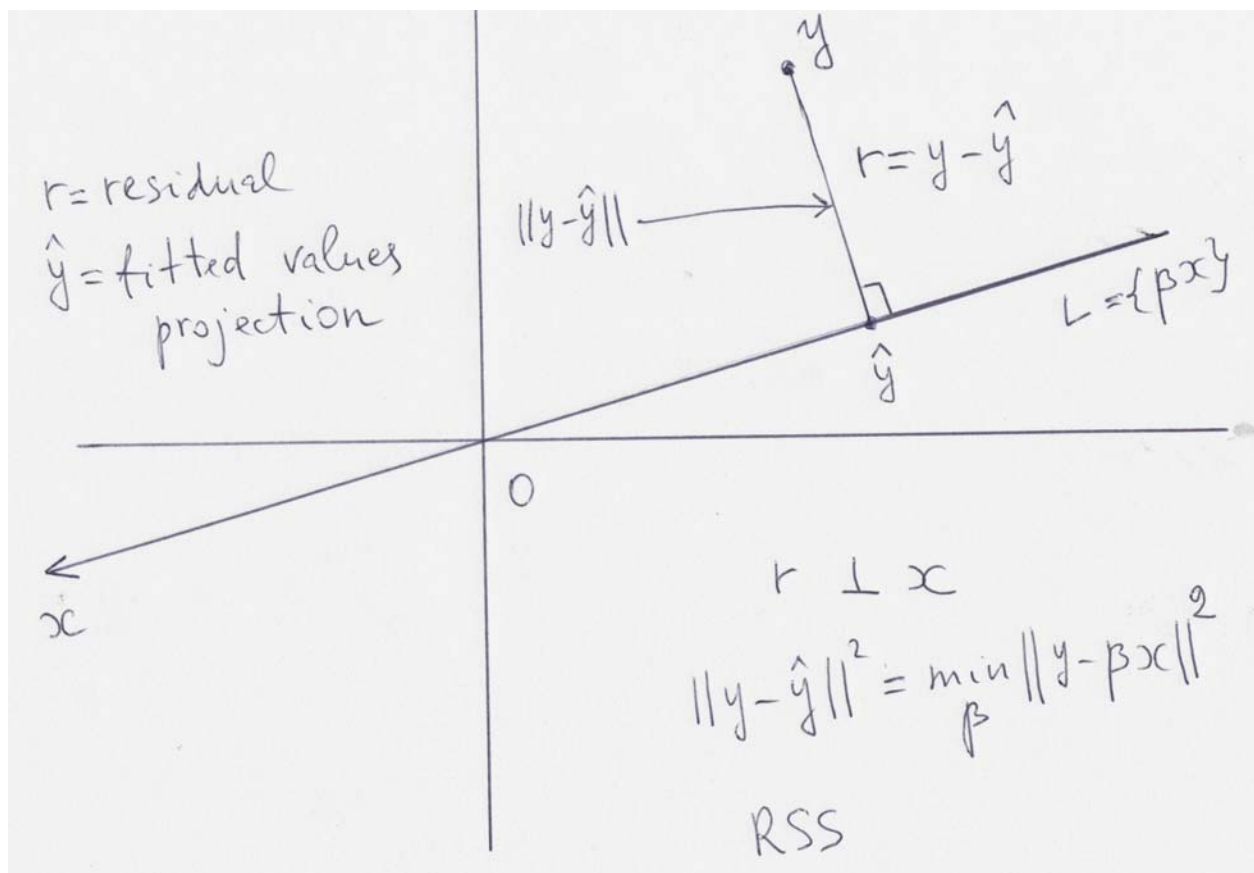 y
r = y - ŷ
r = residual
||y-ŷ||
ŷ = fitted values
projection
L = {βx}
ŷ
0
x
r ⊥ x
||y-ŷ||² = min ||y-βx||²
β
RSS